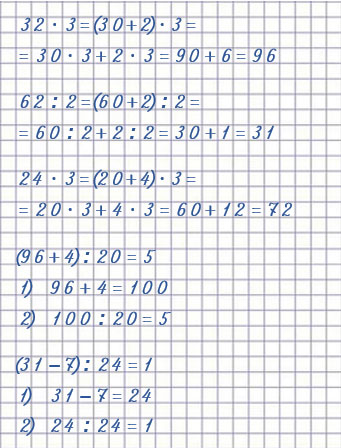 32 · 3 = (30 + 2) · 3 =
= 30 · 3 + 2 · 3 = 90 + 6 = 96
62 : 2 = (60 + 2) : 2 =
= 60 : 2 + 2 : 2 = 30 + 1 = 31
24 · 3 = (20 + 4) · 3 =
= 20 · 3 + 4 · 3 = 60 + 12 = 72
(96 + 4) : 20 = 5
1) 96 + 4 = 100
2) 100 : 20 = 5
(31 – 7) : 24 = 1
1) 31 – 7 = 24
2) 24 : 24 = 1